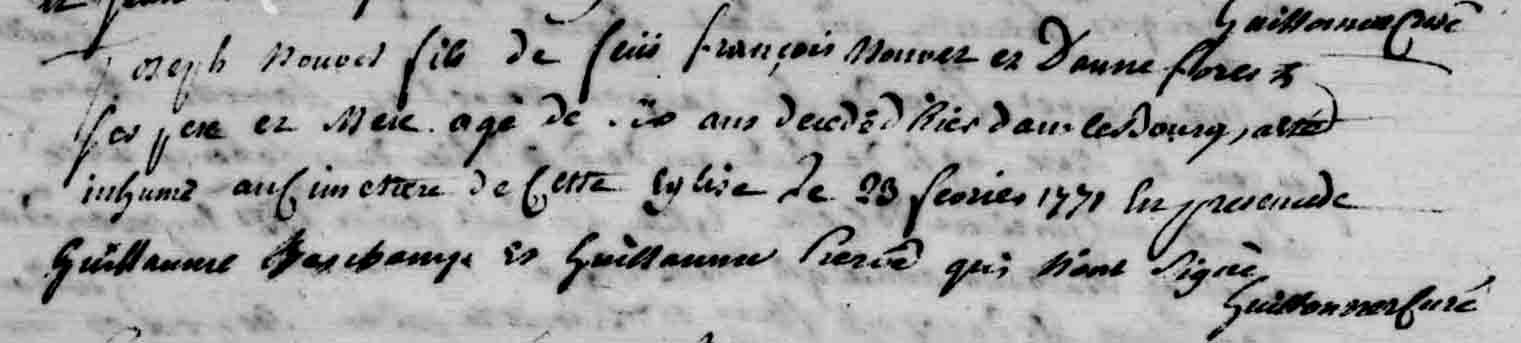 Guillonneau Curé
Joseph Nouvel fils de feüi françois Nouvel et Danne forest
ses pere et Mere agé de six ans decedé hier dans le Bourg, a eté
inhumé au Cimettiere de Cette Eglise le 23 fevrier 1771 En presence de
Guillaume Deschamps et Guillaume qui n'ont signé
Curé